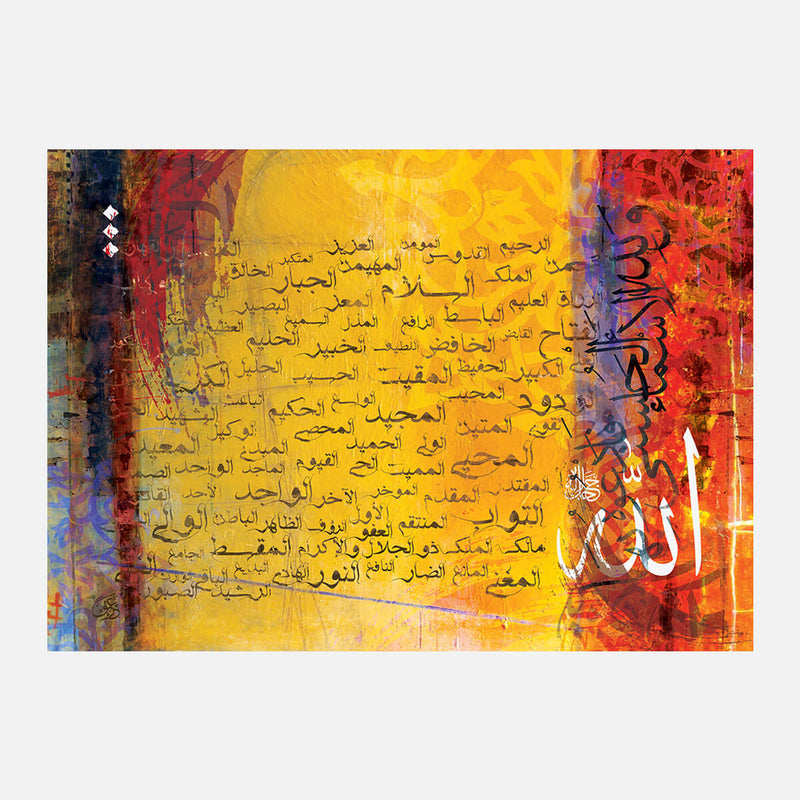 الرحيم المومن العزيز
القدوس المهيمن المتكبر
الملك السلام الجبار الخالق
العليم الباسط المعز البصير
القابض الرافع المذل السميع
الخافض اللطيف الخبير الحليم
الكبير الحفيظ المقيت الحسيب الجليل
ودود المجيب المجيد الواسع الحكيم الباعث
المتين الولي الحميد المحصي الوكيل
المحيي المميت الحي القيوم الماجد الواحد المعيد
المقتدر المقدم الموخر الآخر الواحد الأحد
التواب المنتقم الأول العفو الرؤف الظاهر الباطن الوالي
مالك الملك ذو الجلال والإكرام المقسط الجامع
المغني المانع الضار النافع النور الهادي البديع
الرشيد الصبور
ولله الأسماء الحسنى فادعوه بها
الله